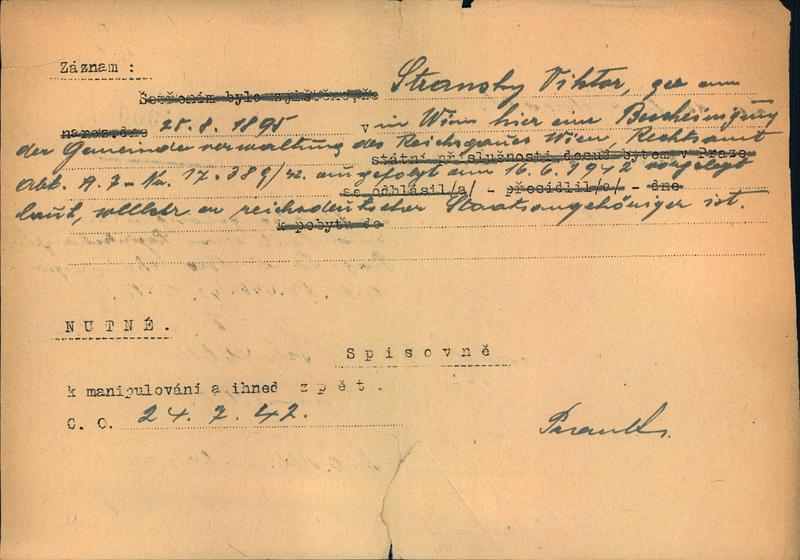 Záznam :
Šetřením bylo zjištěno, že Stransky Viktor, geb am
naroz.dne 25.8.1895 v in Wien hier eine Bescheinigung
der Gemeindeverwaltung des Reichsgaues Wien, Rechtsamt
státní příslušnosti, dosud bytem v Praze
Abt. A. 7 - Nr. 17.389/42. ausgefolgt am 16.6.1942 vorgelegt
se odhlásil/a/ - přesídlil/a/ - dne
laut, welcher er reichsdeutscher Staatsangehöriger ist.
k pobytu do
NUTNÉ.
Spisovně
k manipulování a ihned zpět.
C. O. 24. 7. 42.